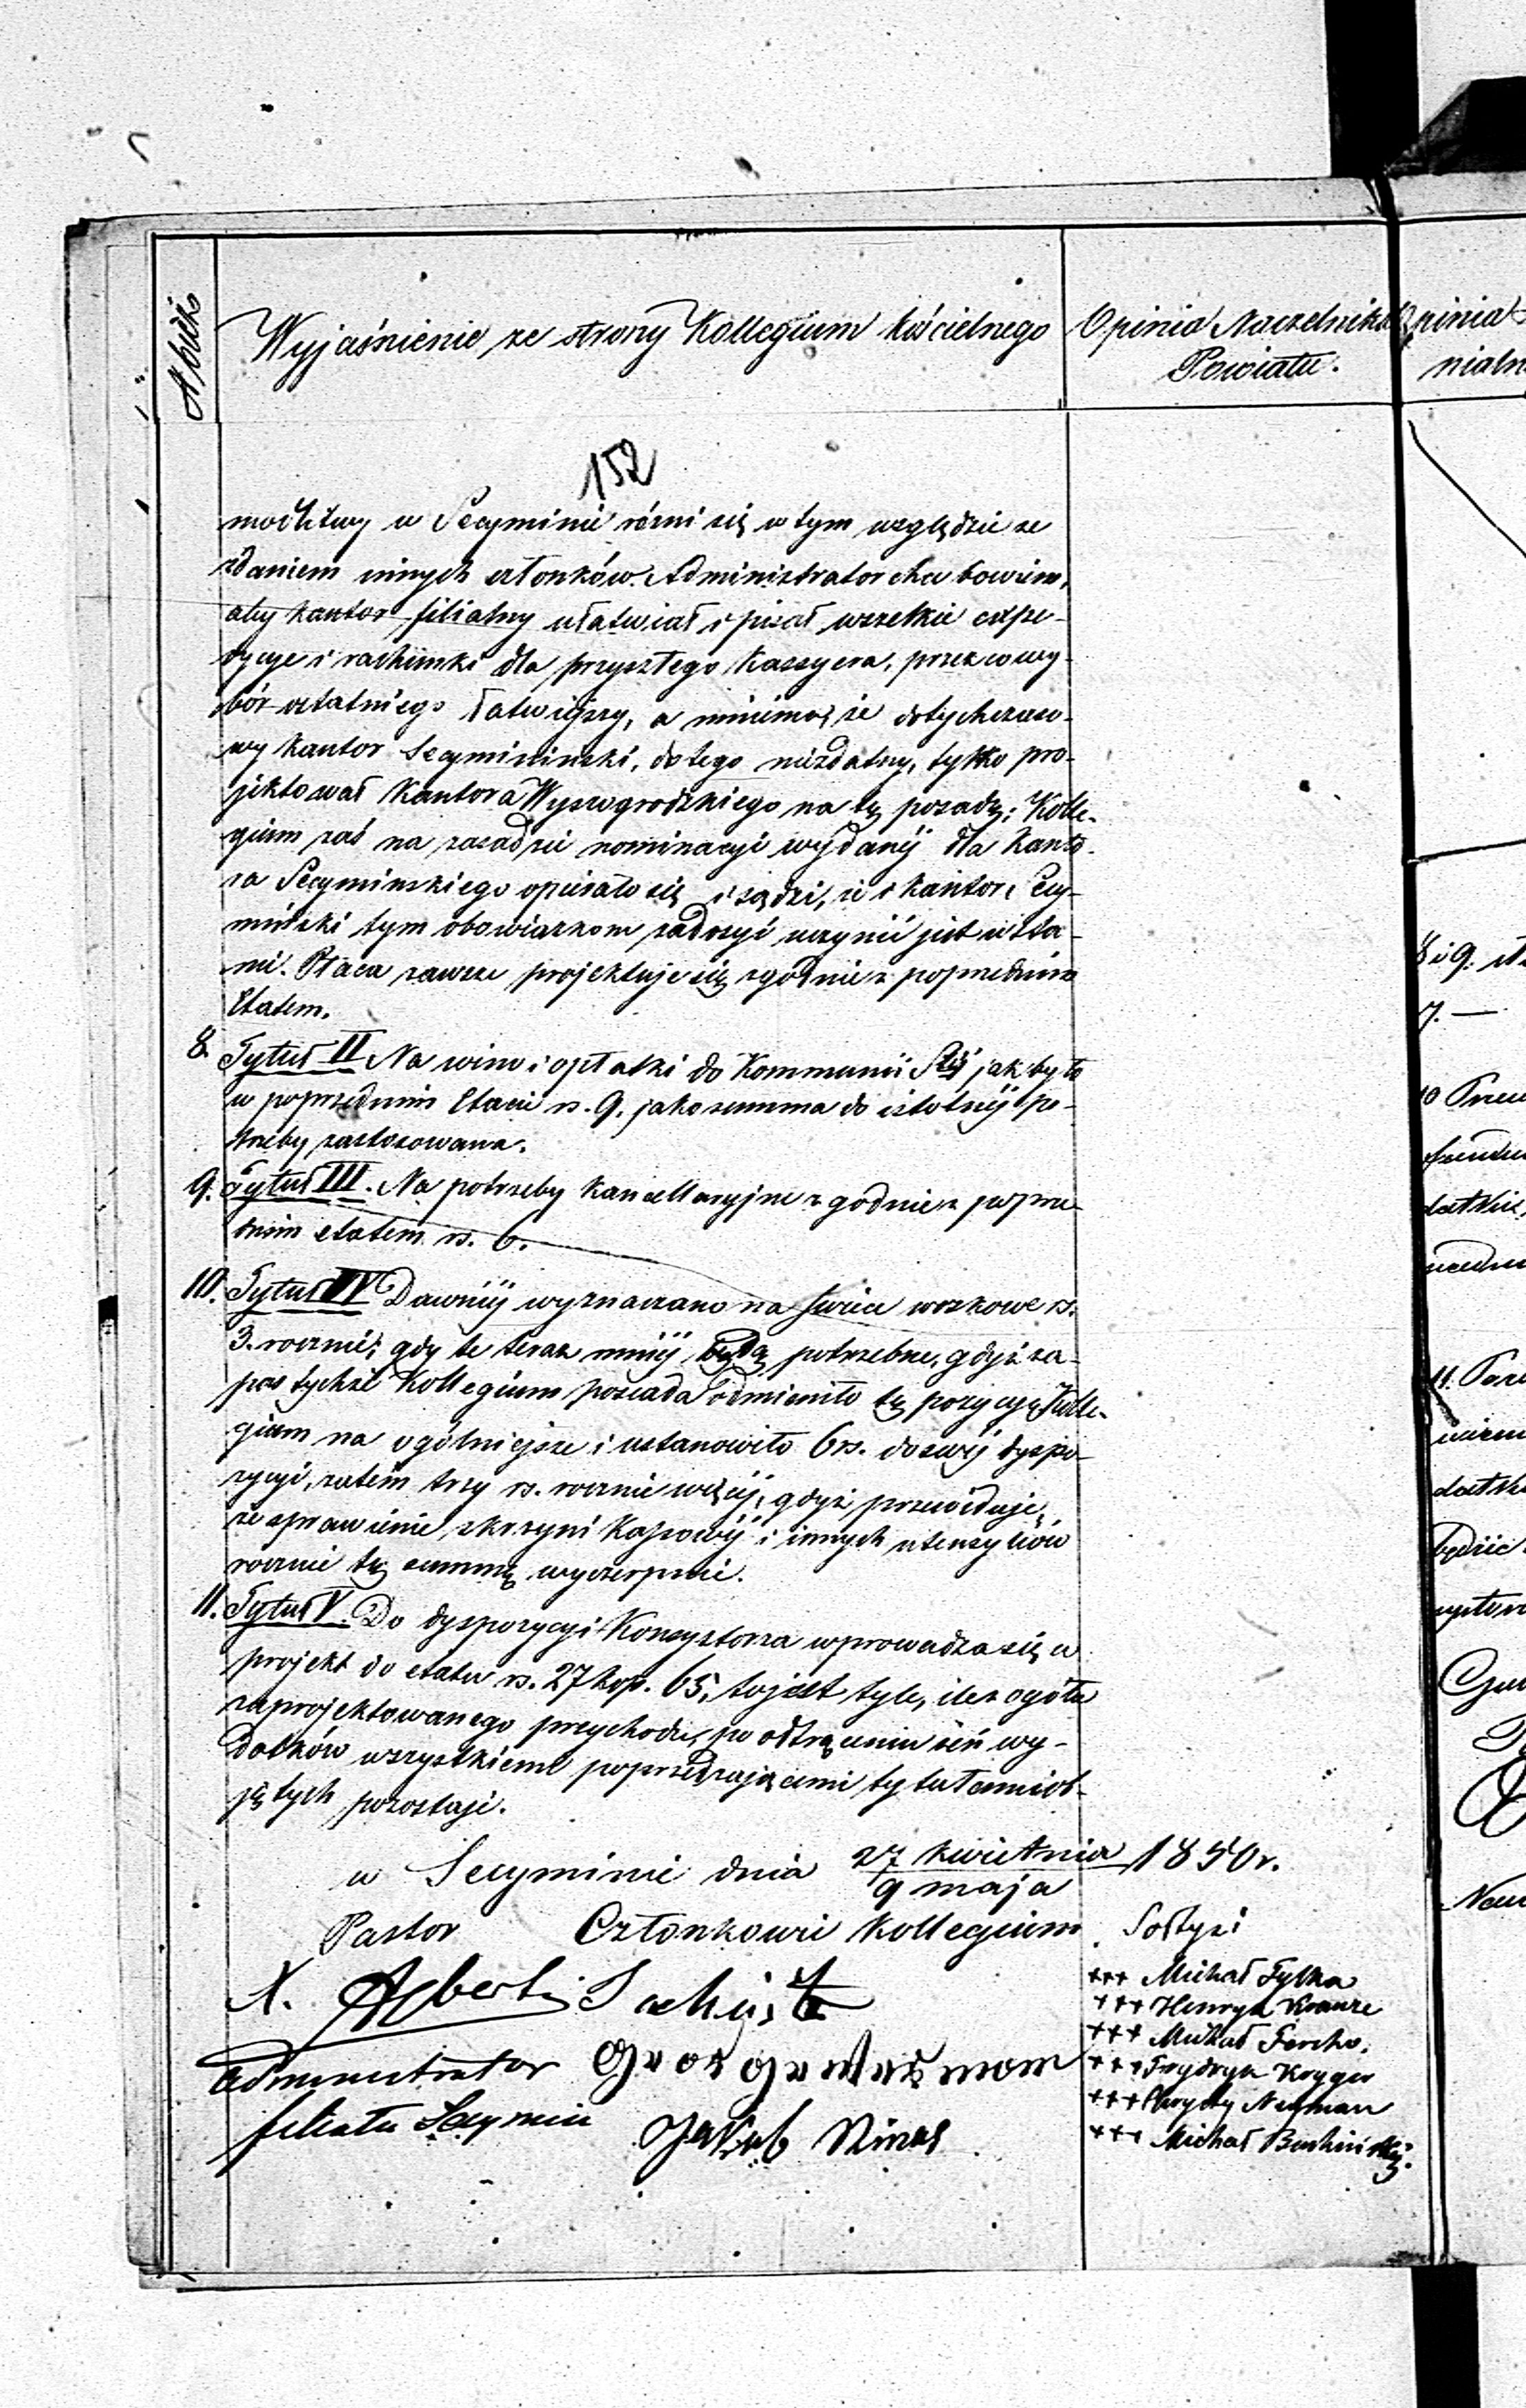 Wyjaśnienie ze strony Kollegium kościelnego
Opinia Naczelnika
Powiatu.
152
modlitwy w Secyminie różni się w tym względzie ze
zdaniem innych członków. Administrator chce bowiem,
aby kantor filialny ułatwiał i pisał wszelkie expe-
dycye i rachunki dla przyszłego Kassyera, przez co wy-
bór ostatniego łatwiejszy, a mniemając że dotychczaso-
wy kantor Secyminiński, do tego niezdatny, tylko pro-
jektował Kantora Wyszogrodzkiego na tę posadę; Kolle-
gium zaś na zasadzie nominacyi wydanéj dla Kanto-
ra Secymińskiego opierało się i sądzi, że i kantor Secy-
miński tym obowiązkom zadosyć uczynić jest w sta-
nie. Płaca zawsze projektuje się zgodnie z poprzednim
Etatem.
8. Tytuł II Na wino i opłatki do Kommunii Stéj jak było
w poprzednim Etacie rs. 9. jako summa do istotnéj po-
trzeby zastosowana.
9. Tytuł III. Na potrzeby Kancellaryjne zgodnie z poprze-
dnim etatem rs. 6.
10. Tytuł IV Dawniéj wyznaczano na świce woskowe rs.
3. rocznie; gdy te teraz mniéj będą potrzebne, gdyż za-
pas tychże Kollegium posiada odmieniło tę pozycyę Kolle-
gium na ogólniejsze i ustanowiło 6 rs. do swéj dyspo-
zycyi, zatém trzy rs. rocznie więcéj, gdyż przewiduje,
że sprawienie skrzyni Kassowéj i innych utensyliów
rocznie tę summę wyczerpnie.
11. Tytuł V. Do dyspozycyi Konsystorza wprowadza się w
projekt do etatu rs. 27 kop. 65, to jest tyle, ile z ogółu
zaprojektowanego przychodu, po odtrąceniu zeń wy-
datków wszystkiemi poprzedzającemi tytułami ob-
jętych pozostaje.
w Secyminie dnia 27 kwietnia / 9 maja 1850 r.
Pastor Członkowie Kollegium Sołtysi
X. Alberti
Administrator
filiału Secymin
Jakob
+++ Michał Tylka
+++ Henryk Krauze
+++ Michał Ferchs.
+++ Frydryk Krygier
+++ Neyman
+++ Michał